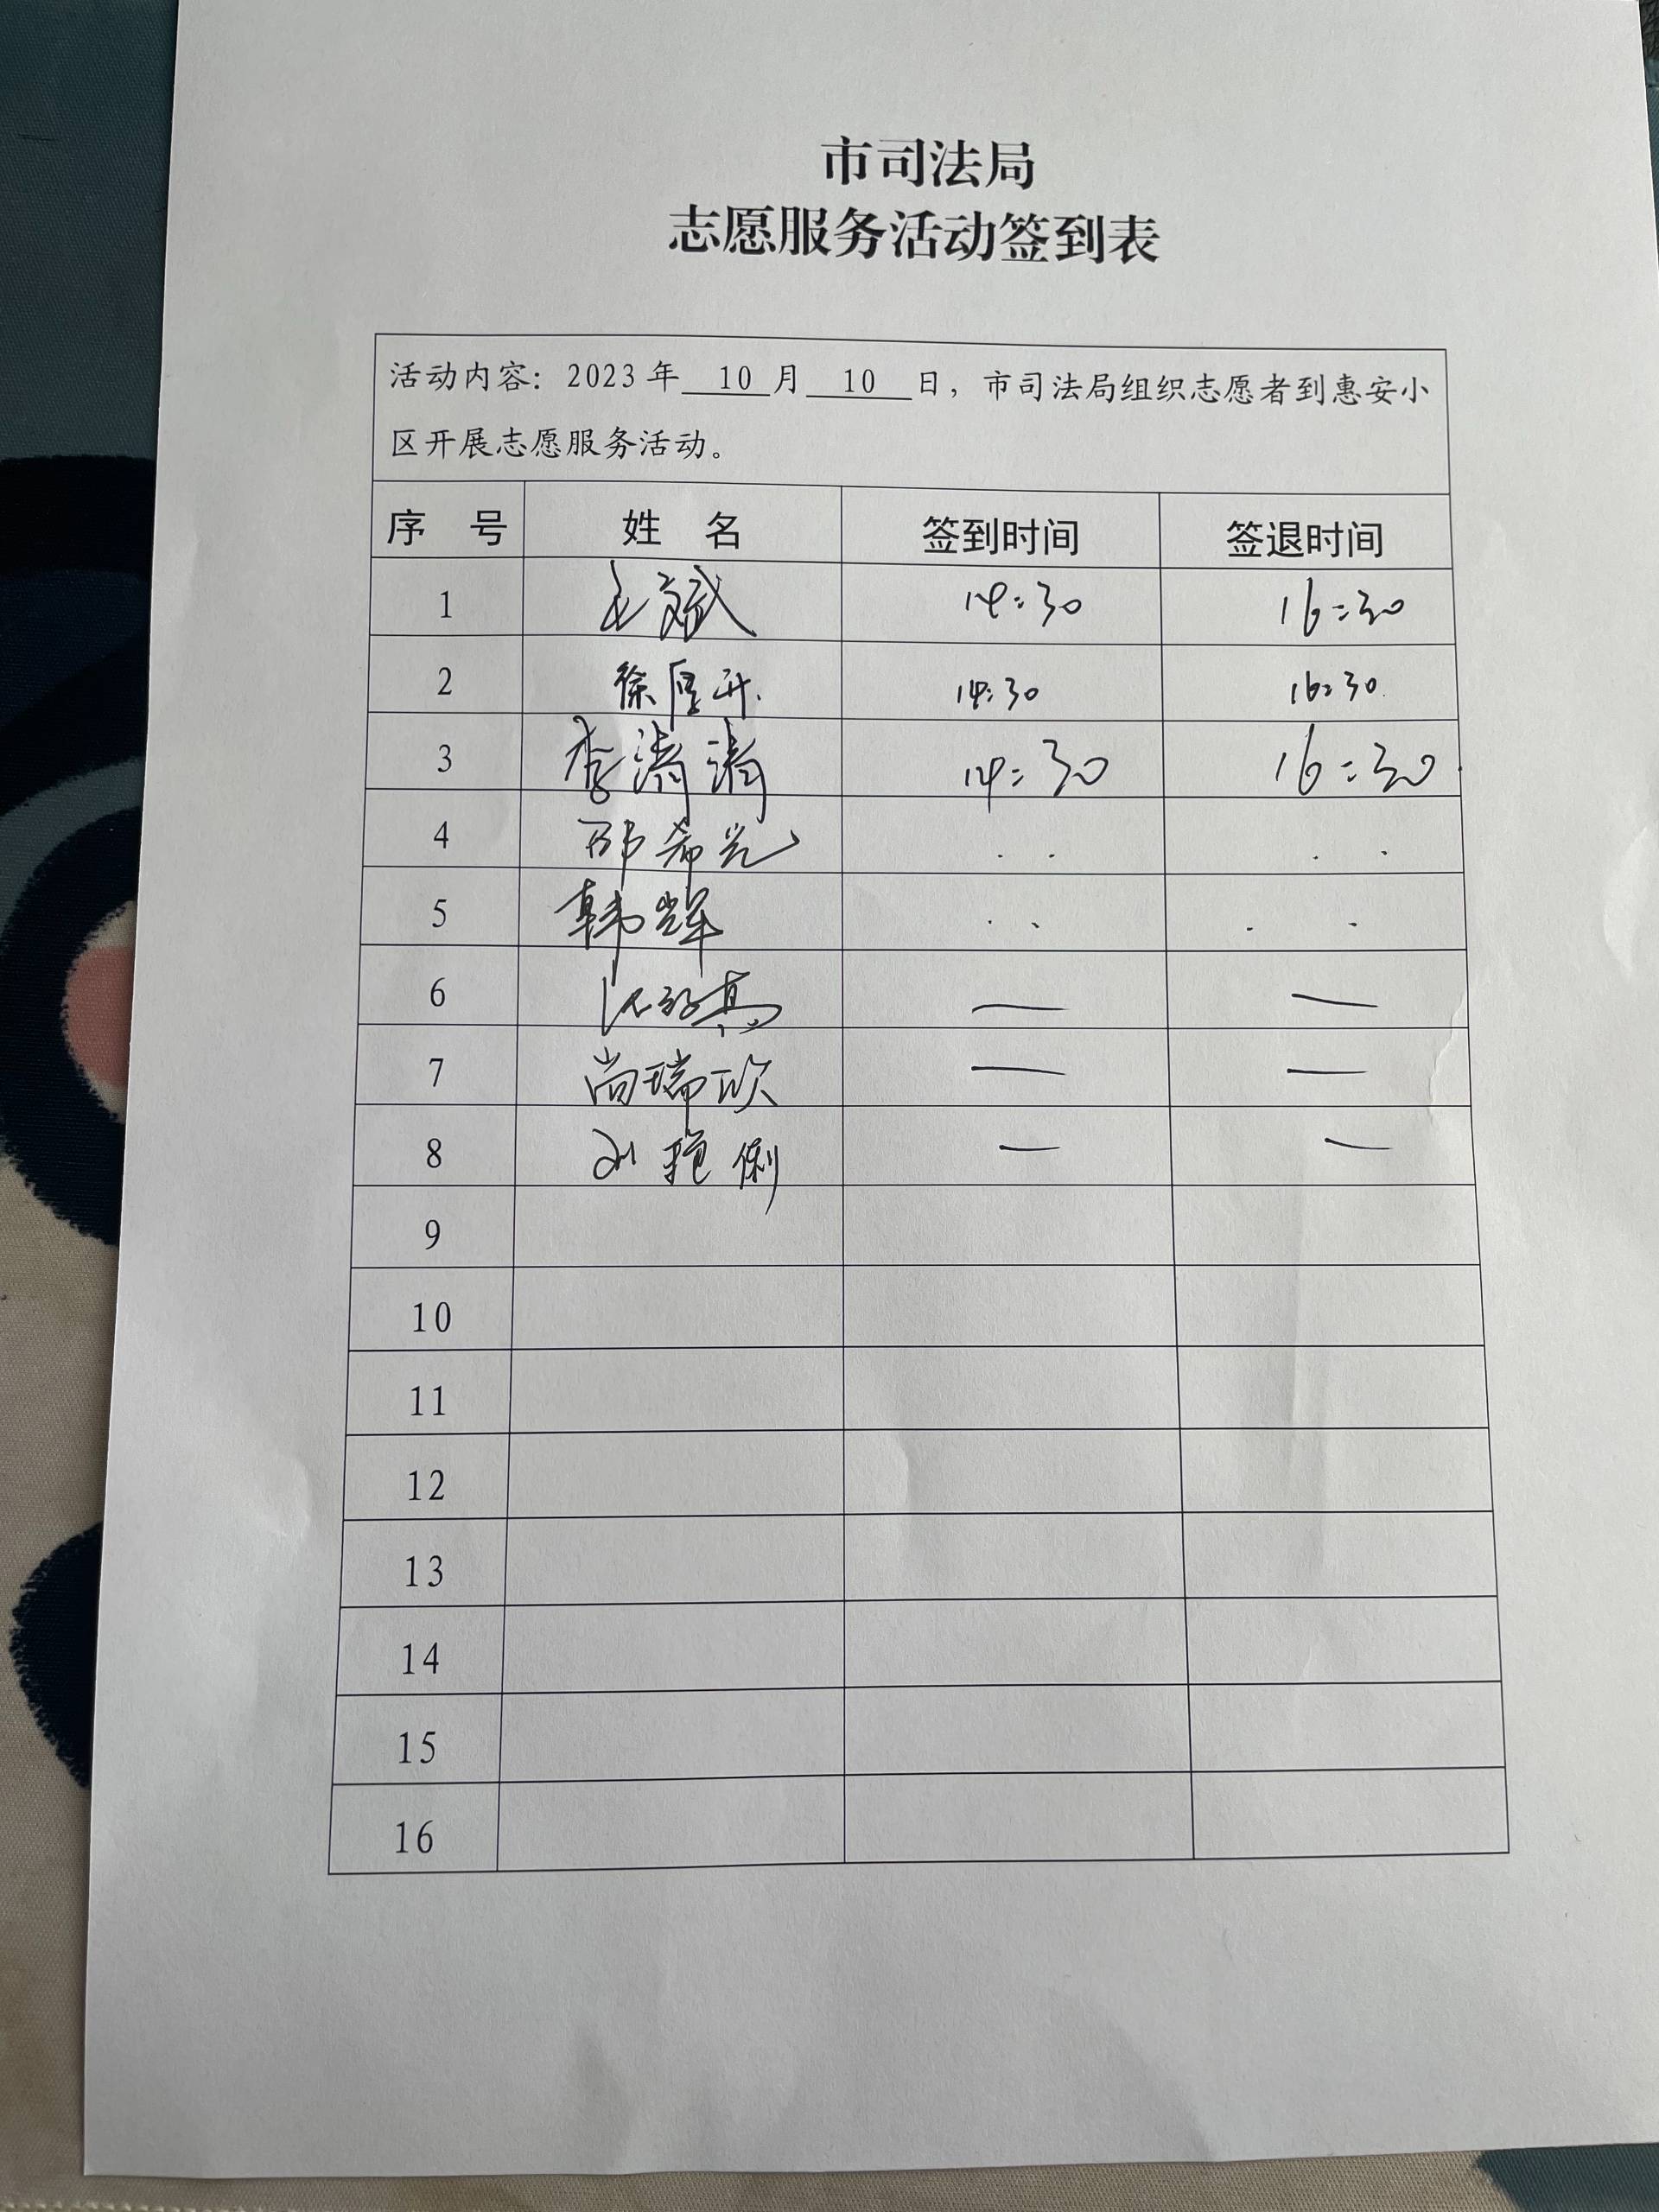 市司法局
志愿服务活动签到表
活动内容：2023年 10 月 10 日，市司法局组织志愿者到惠安小
区开展志愿服务活动。
序 号 姓 名 签到时间 签退时间
1 王斌 14:30 16:30
2 徐厚升 14:30 16:30
3 李清清 14:30 16:30
4 邵希光 . . . .
5 韩辉 . . . .
6 — —
7 尚瑞欣 — —
8 刘艳俐 — —
9
10
11
12
13
14
15
16